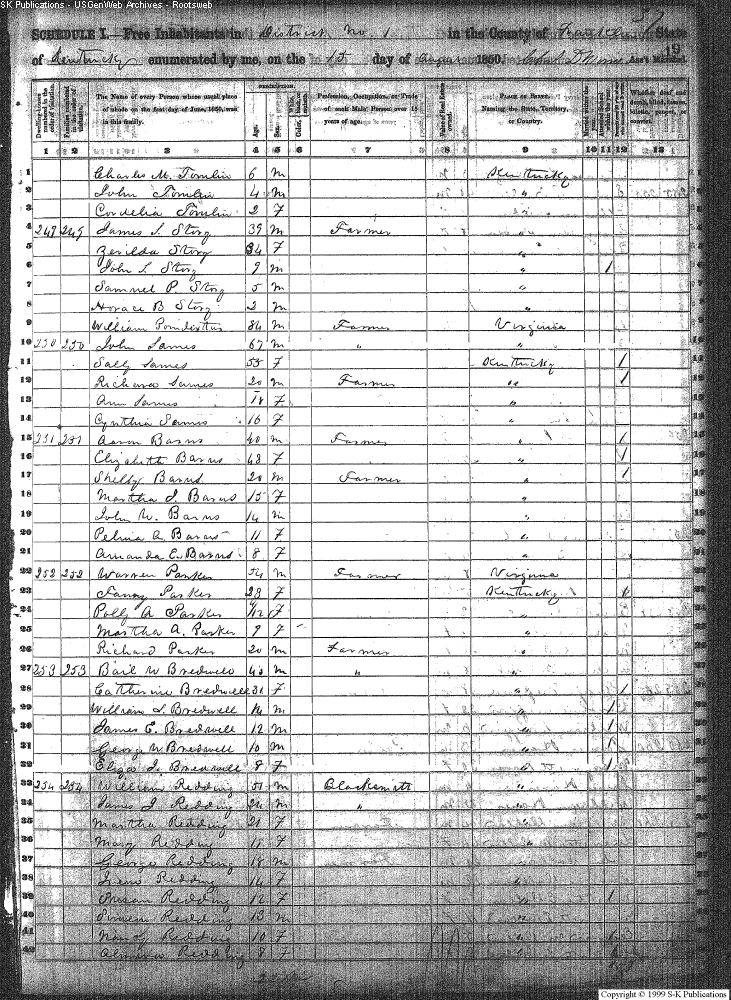 SK Publications - USGenWeb Archives - Rootsweb
37
SCHEDULE I.—Free Inhabitants in District No. 1 in the County of State
of Kentucky enumerated by me, on the 15 day of August 1850. Ass't Marshal. 19
Dwelling-houses numbered in the order of visitation.
Families numbered in the order of visitation.
The Name of every Person whose usual place of abode on the first day of June, 1850, was in this family.
DESCRIPTION.
Age.
Sex.
Color,
Profession, Occupation, or Trade of each Male Person over 15 years of age.
Value of Real Estate owned.
PLACE OF BIRTH. Naming the State, Territory, or Country.
Whether deaf and dumb, blind, insane, idiotic, pauper, or convict.
1 2 3 4 5 6 7 8 9 10 11 12 13
1 Charles M. Tomlin 6 M Kentucky
2 John Tomlin 4 M "
3 Cordelia Tomlin 2 F "
4 249 249 James S. Story 39 M Farmer "
5 Zerilda Story 34 F "
6 John S. Story 9 M " 1
7 Samuel P. Story 5 M "
8 Horace B Story 2 M "
9 William 84 M Farmer Virginia
10 250 250 John James 67 M " "
11 Sally James 55 F Kentucky 1
12 Richard James 20 M Farmer " 1
13 Ann James 18 F "
14 Cynthia James 16 F "
15 251 251 Aaron Barns 40 M Farmer " 1
16 Elizabeth Barns 48 F " 1
17 Shelby Barns 20 M Farmer " 1
18 Martha J Barns 15 F "
19 John W. Barns 14 M "
20 Pelina A Barns 11 F "
21 Amanda E. Barns 8 F "
22 252 252 Warren Parker 54 M Farmer Virginia
23 Fanny Parker 28 F Kentucky 1
24 Polly A Parker F "
25 Martha A. Parker 9 F "
26 Richard Parker 20 M Farmer "
27 253 253 Bail W Bredwell 43 M " "
28 Catherine Bredwell 31 F " 1
29 William S. Bredwell 14 M " 1
30 James E. Bredwell 12 M " 1
31 George W Bredwell 10 M " 1
32 Eliza J. Bredwell 8 F " 1
33 254 254 William Redding 51 M Blacksmith "
34 James J Redding 24 M " "
35 Martha Redding 21 F "
36 Mary Redding 18 F "
37 George Redding 18 M "
38 Irene Redding 14 F "
39 Susan Redding 12 F " 1
40 Simeon Redding 13 M "
41 Nancy Redding 10 F " 1
42 Redding 8 F "
Copyright © 1999 S-K Publications